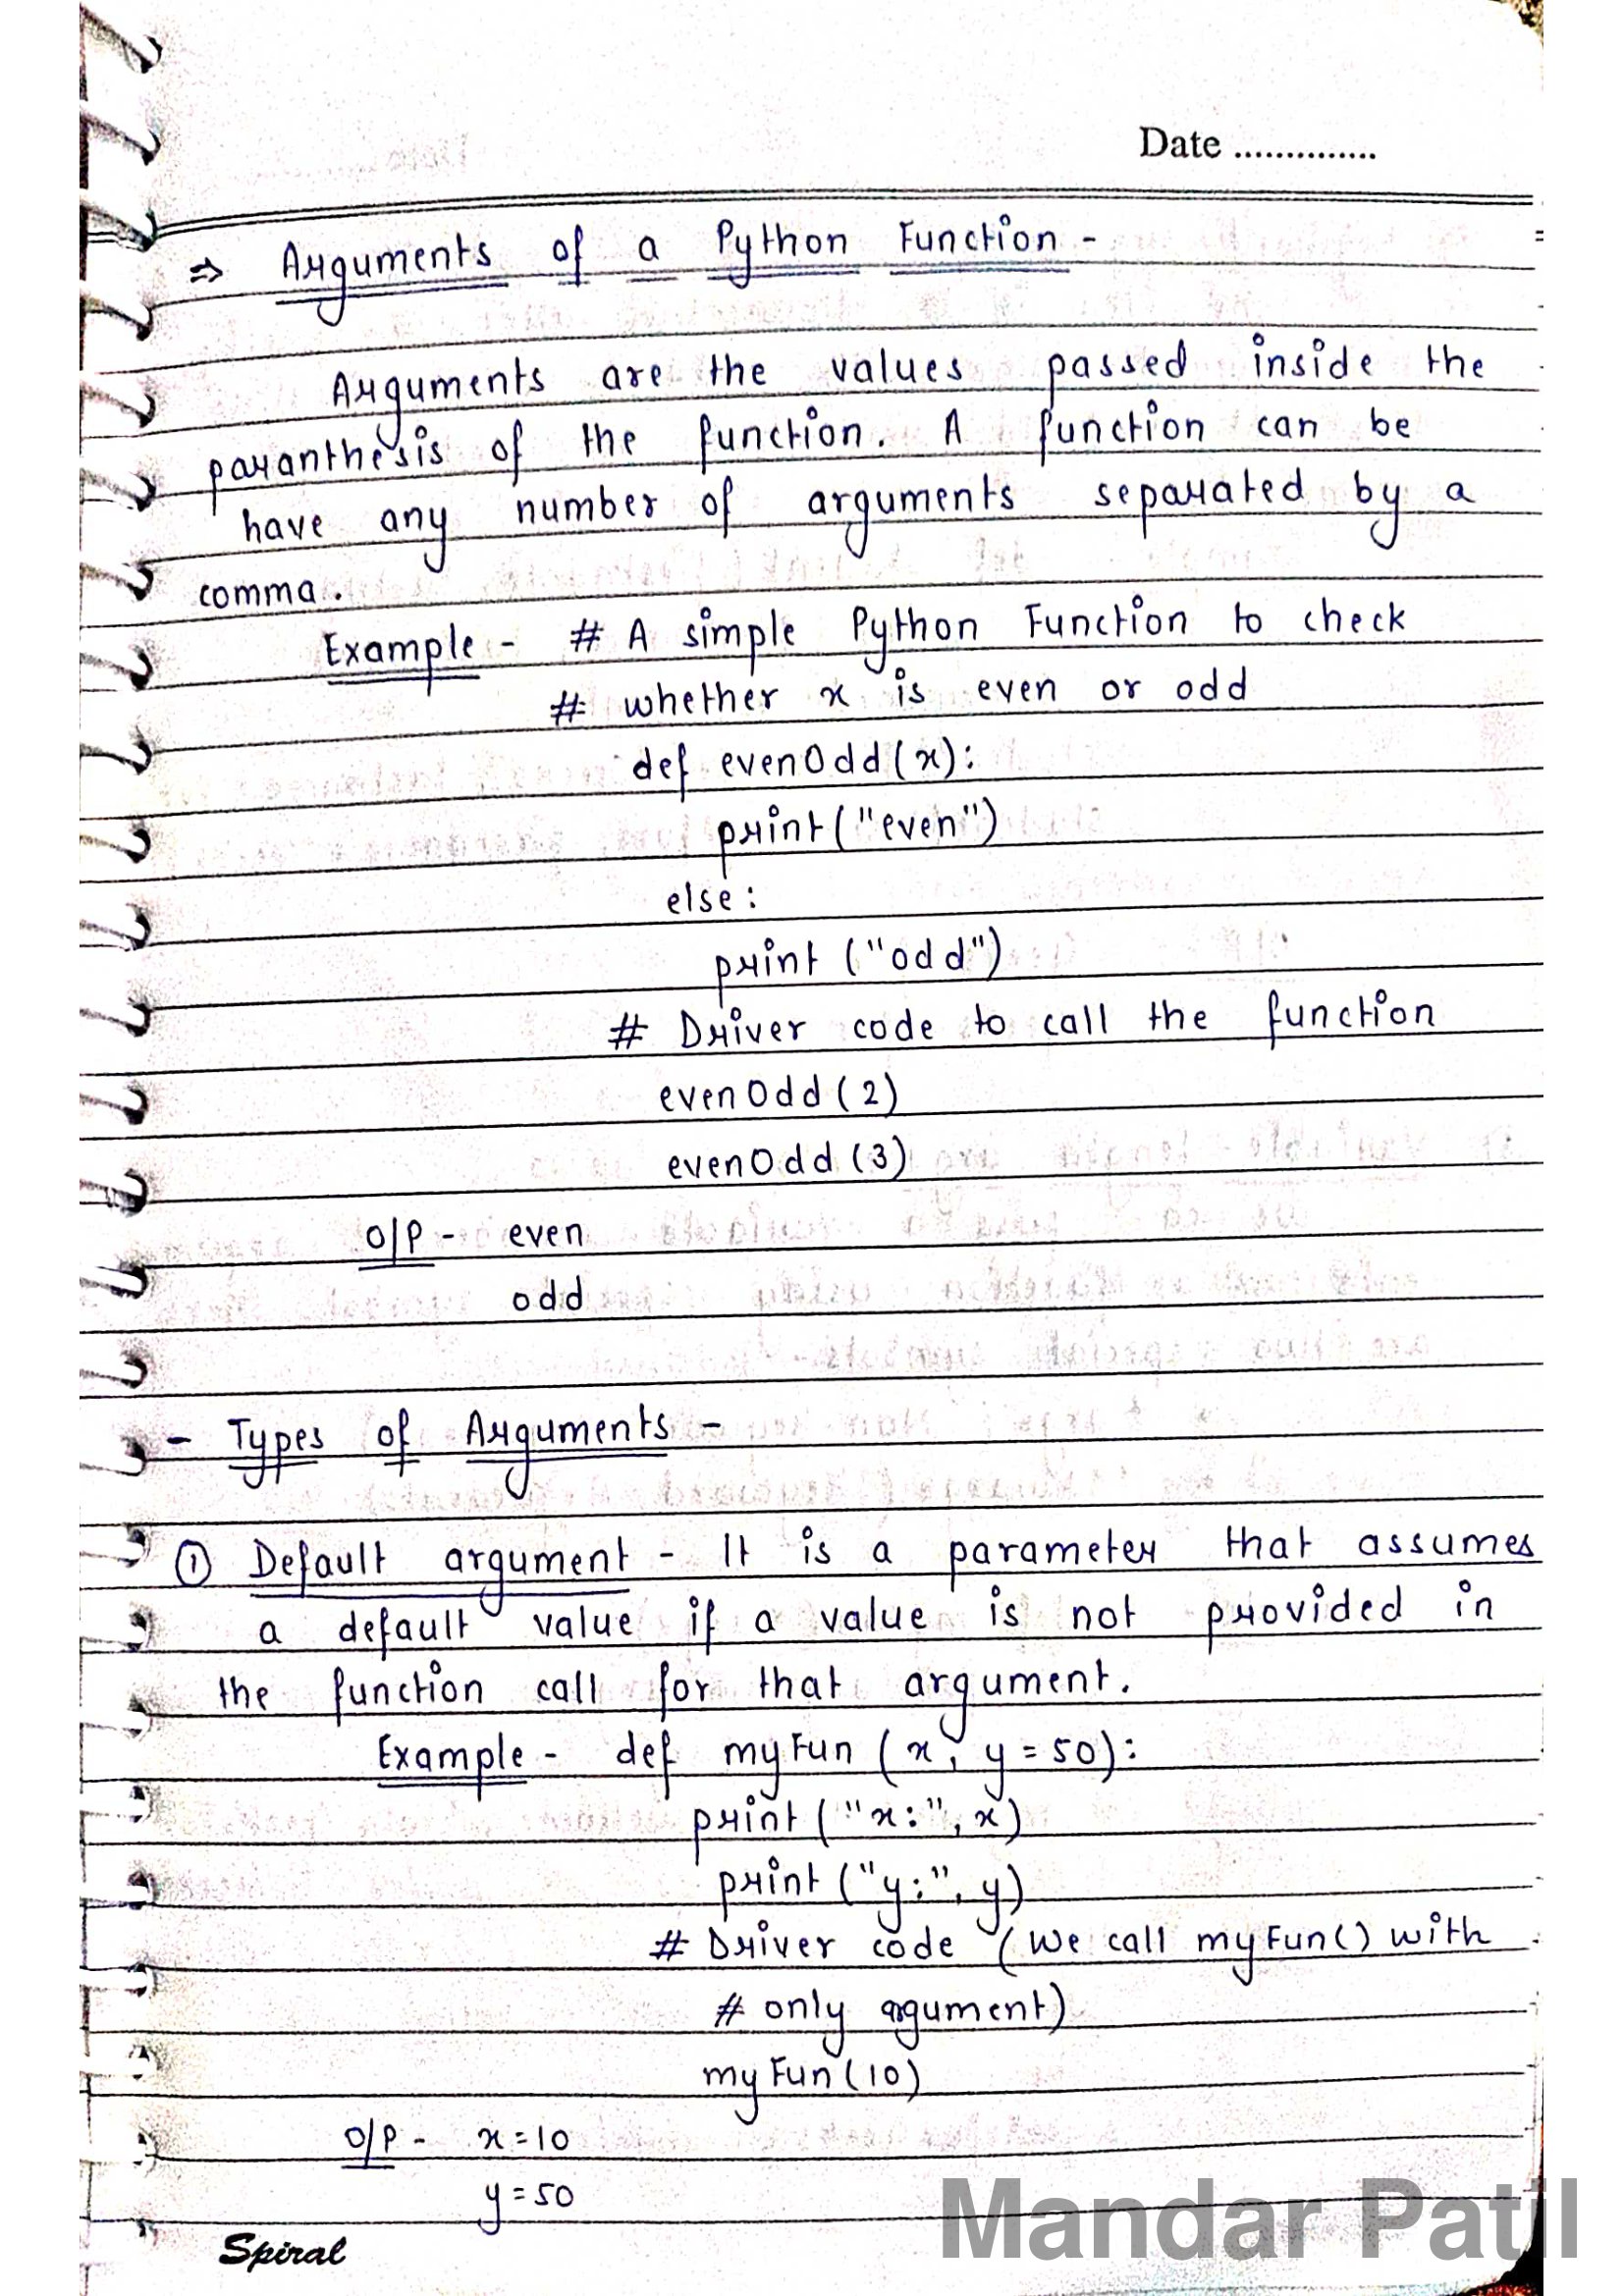 Date ..............
⇒ Arguments of a Python Function -
Arguments are the values passed inside the
paranthesis of the function. A function can be
have any number of arguments separated by a
comma.
Example - # A simple Python Function to check
# whether x is even or odd
def evenOdd(x):
print("even")
else:
print ("odd")
# Driver code to call the function
evenOdd (2)
evenOdd (3)
O/P - even
odd
- Types of Arguments -
① Default argument - It is a parameter that assumes
a default value if a value is not provided in
the function call for that argument.
Example - def myFun (x, y = 50):
print ("x:", x)
print ("y:", y)
# Driver code (We call myFun() with
# only argument)
myFun (10)
O/P - x = 10
y = 50
Spiral
Mandar Patil